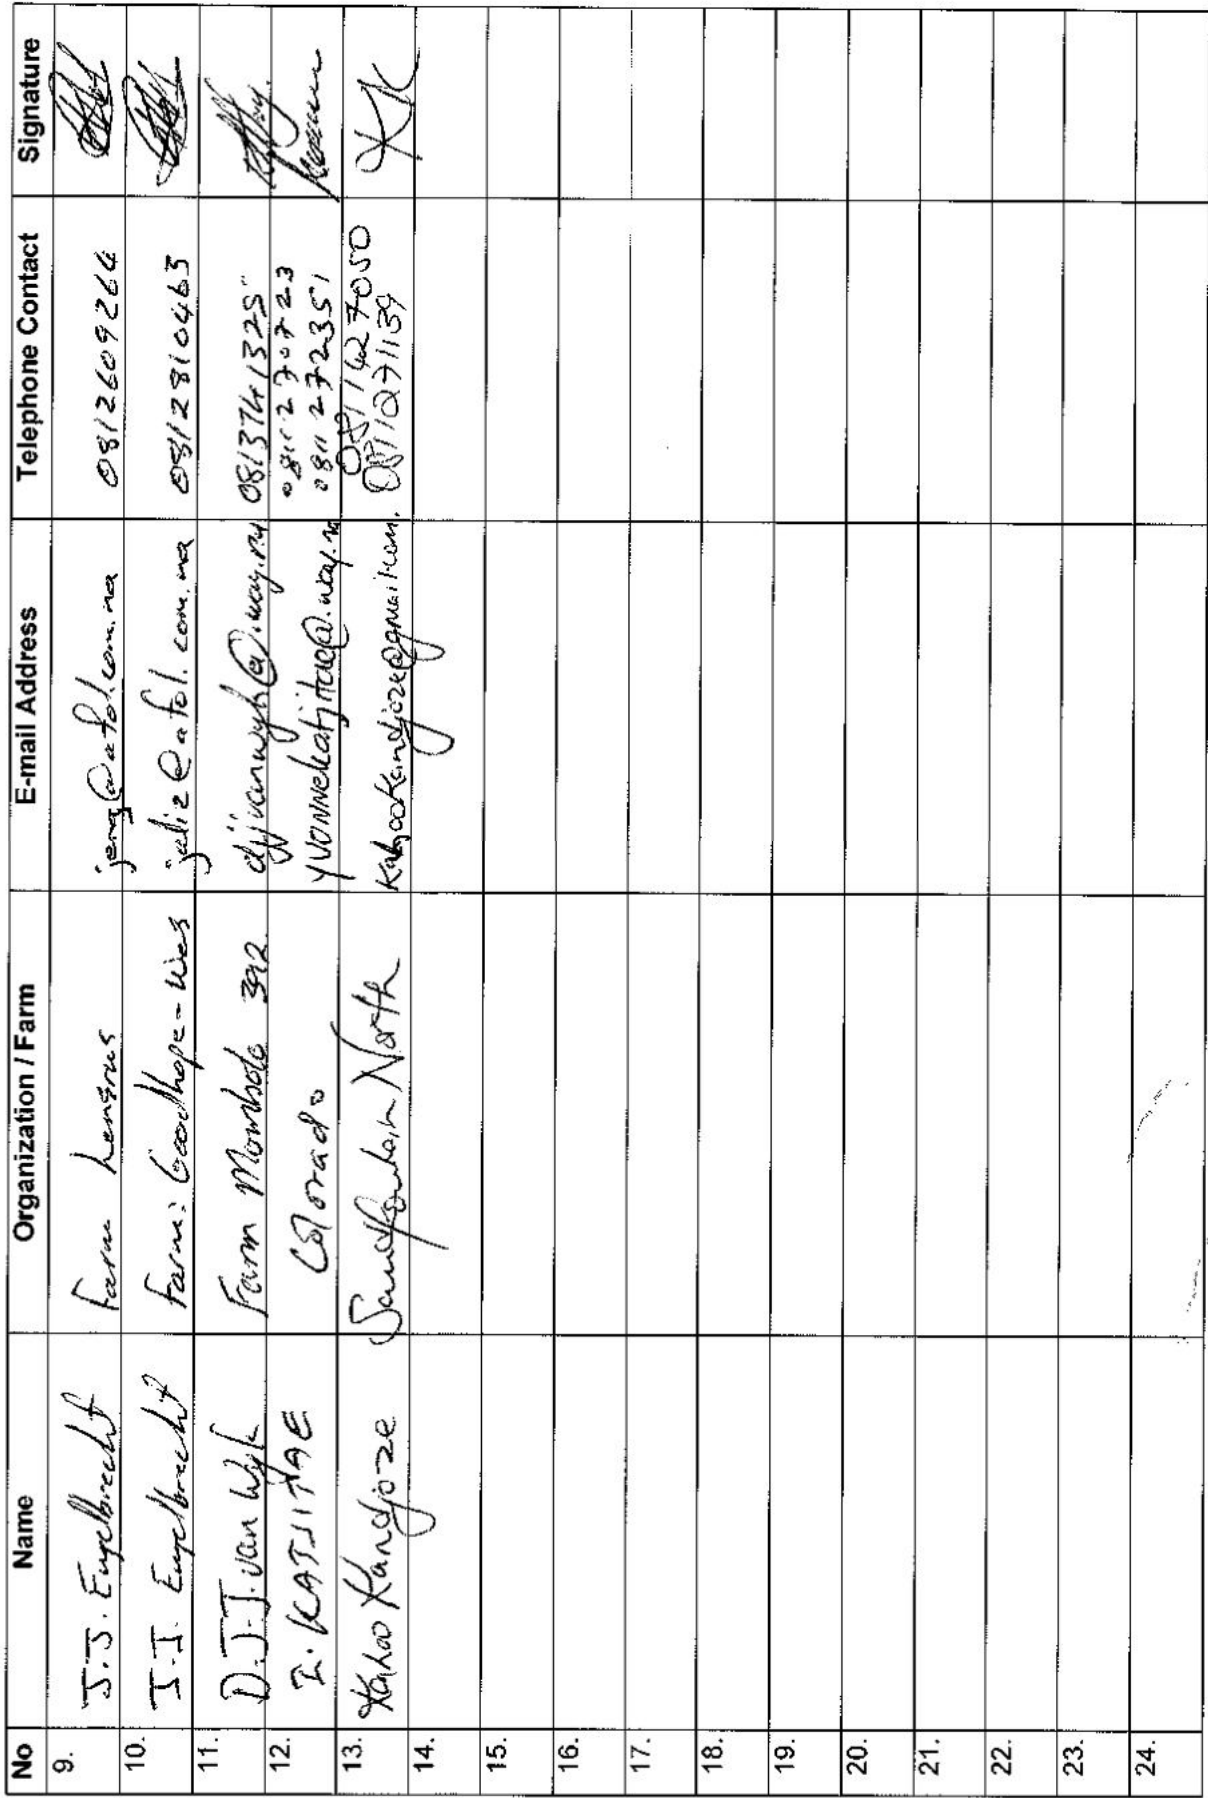 No Name Organization / Farm E-mail Address Telephone Contact Signature
9. J.J. Engelbrecht Farm jeng@afol.com.na 0812609264
10. J.J. Engelbrecht Farm: Goodhope-Wes jaliz@afol.com.na 0812810463
11. D.J.J. van Wyk Farm 392 djjvanwyk@.way.na 0813741325
12. I. KATJITAE Colorado yvonnekatjitae@.way.na 0811270723
0811272351
13. Kahoo Kandjoze Sandfontein North kahookandjoze@gmail.com. 0811427050
0811271139
14.
15.
16.
17.
18.
19.
20.
21.
22.
23.
24.